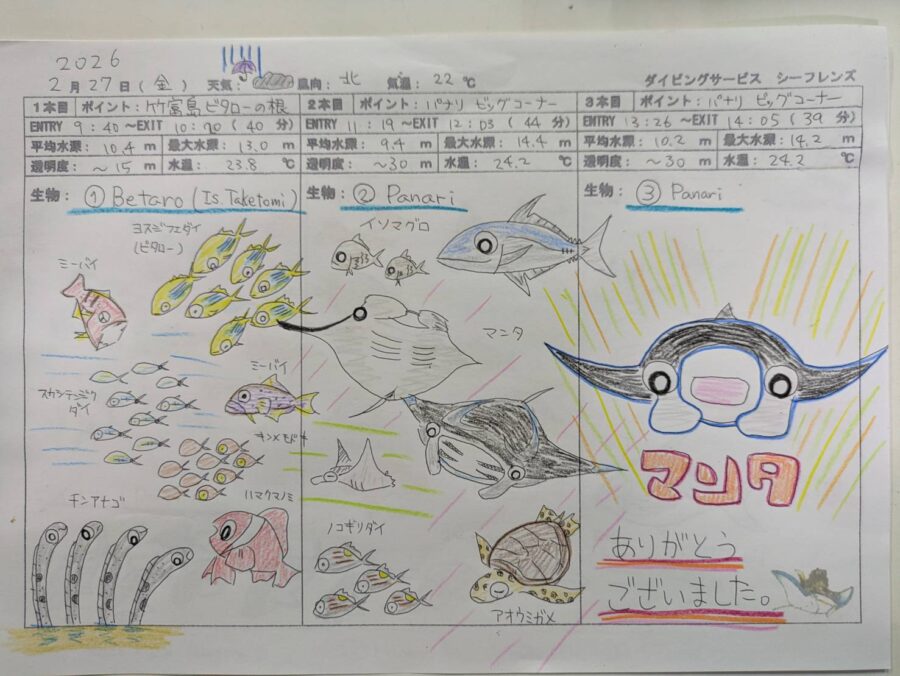 2026
2月27日(金) 天気: 風向: 北 気温: 22℃ ダイビングサービス シーフレンズ
1本目 ポイント: 竹富島ビタローの根
ENTRY 9:40 ~EXIT 10:20 (40分)
平均水深: 10.4 m 最大水深: 13.0 m
透明度: ~15 m 水温: 23.8 ℃
生物: ① Betaro (Is Taketomi)
ヨスジフエダイ
(ビタロー)
ミーバイ
スカシテンジク
ダイ
ミーバイ
キンメモドキ
チンアナゴ
ハマクマノミ
2本目 ポイント: パナリ ビッグコーナー
ENTRY 11:19 ~EXIT 12:03 (44分)
平均水深: 9.4 m 最大水深: 14.4 m
透明度: ~30 m 水温: 24.2 ℃
生物: ② Panari
イソマグロ
マンタ
ノコギリダイ
アオウミガメ
3本目 ポイント: パナリ ビッグコーナー
ENTRY 13:26 ~EXIT 14:05 (39分)
平均水深: 10.2 m 最大水深: 14.2 m
透明度: ~30 m 水温: 24.2 ℃
生物: ③ Panari
マンタ
ありがとう
ございました。